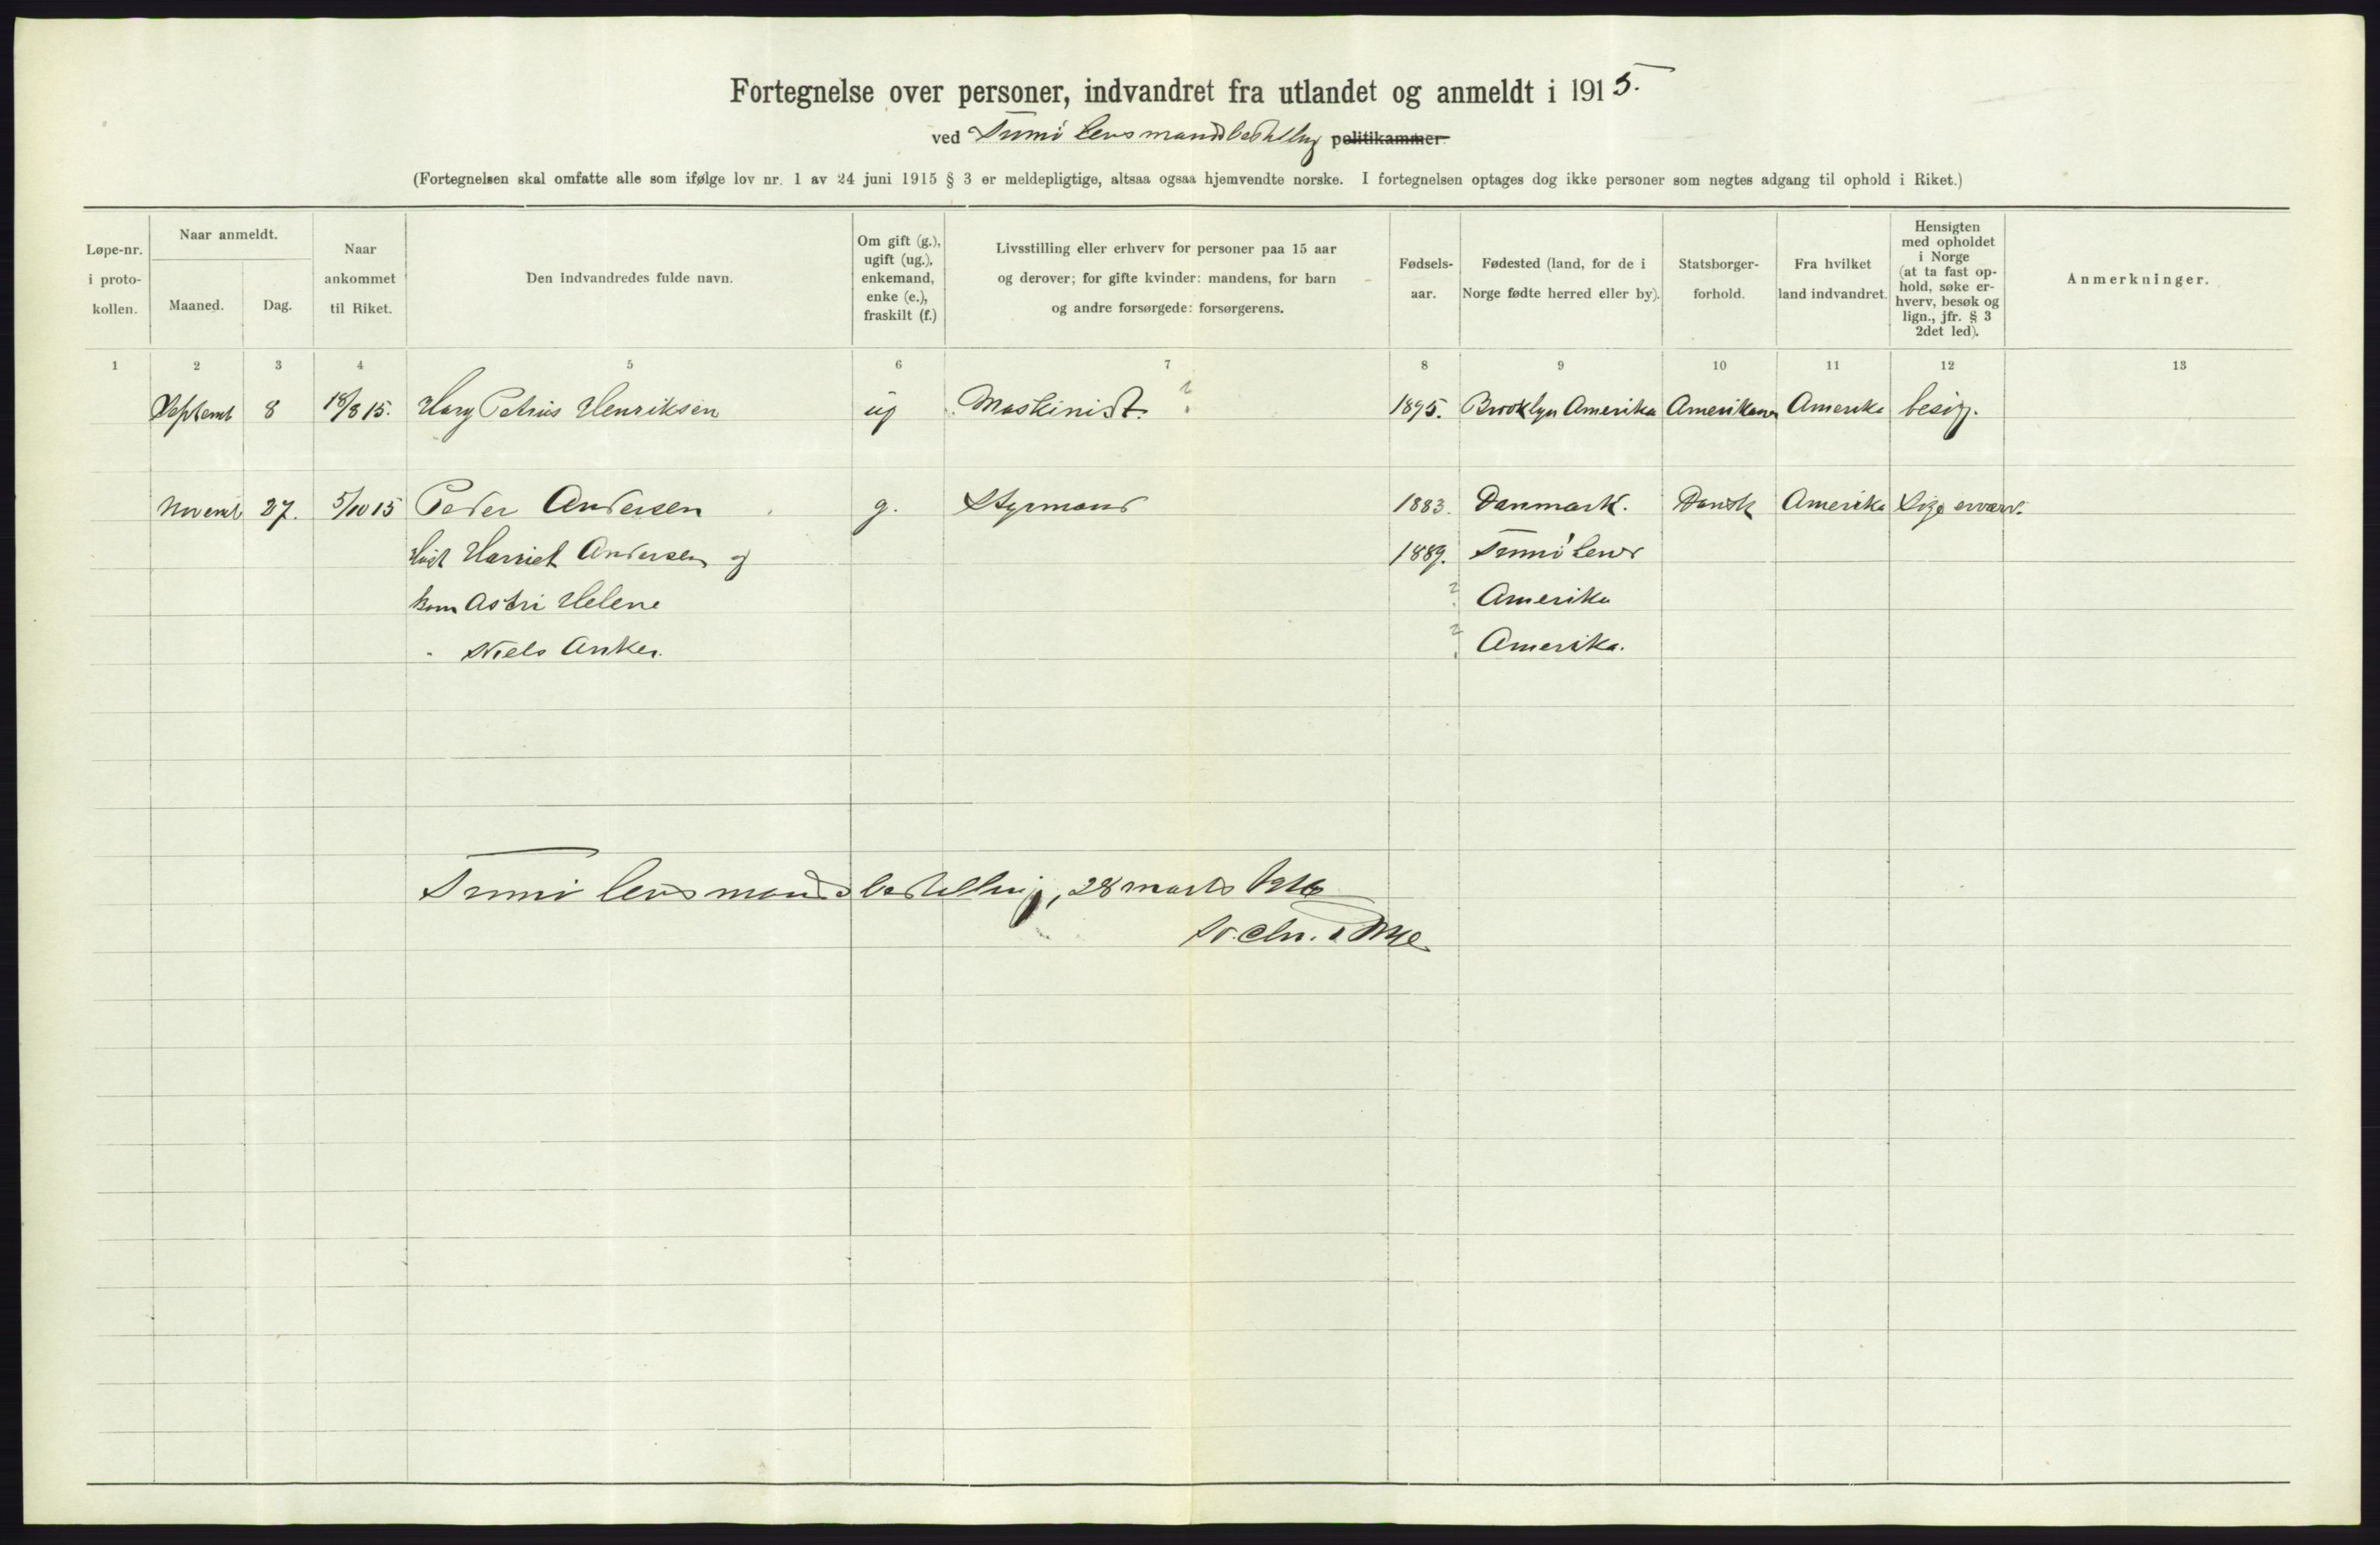 Fortegnelse over personer, indvandret fra utlandet og anmeldt i 1915.
ved Tromø lensmandsbestilling politikammer.
(Fortegnelsen skal omfatte alle som ifølge lov nr. 1 av 24 juni 1915 § 3 er meldepligtige, altsaa ogsaa hjemvendte norske. I fortegnelsen optages dog ikke personer som negtes adgang til ophold i Riket.)
Løpe-nr. i proto-kollen.
Naar anmeldt.
Maaned.
Dag.
Naar ankommet til Riket.
Den indvandredes fulde navn.
Om gift (g.), ugift (ug.), enkemand, enke (e.), fraskilt (f.)
Livsstilling eller erhverv for personer paa 15 aar og derover; for gifte kvinder: mandens, for barn og andre forsørgede: forsørgerens.
Fødsels-aar.
Fødested (land, for de i Norge fødte herred eller by).
Statsborger-forhold.
Fra hvilket land indvandret.
Hensigten med opholdet i Norge (at ta fast op-hold, søke er-hverv, besøk og lign., jfr. § 3 2det led).
Anmerkninger.
1 2 3 4 5 6 7 8 9 10 11 12 13
Septemb 8 18/8 15. Hary Petrius Henriksen ug Maskinist. ? 1895. Brooklyn Amerika Amerikaner Amerika besøg.
Novemb 27. 5/10 15 Peder Andersen g. Styrmand 1883. Danmark. Dansk Amerika søge erverv.
Hust Harriet Andersen og 1889. Tromø lensd
barn Astri Helene ? Amerika
" Niels Anker. ? Amerika.
Tromø lensmandsbestilling, 28 marts 1916